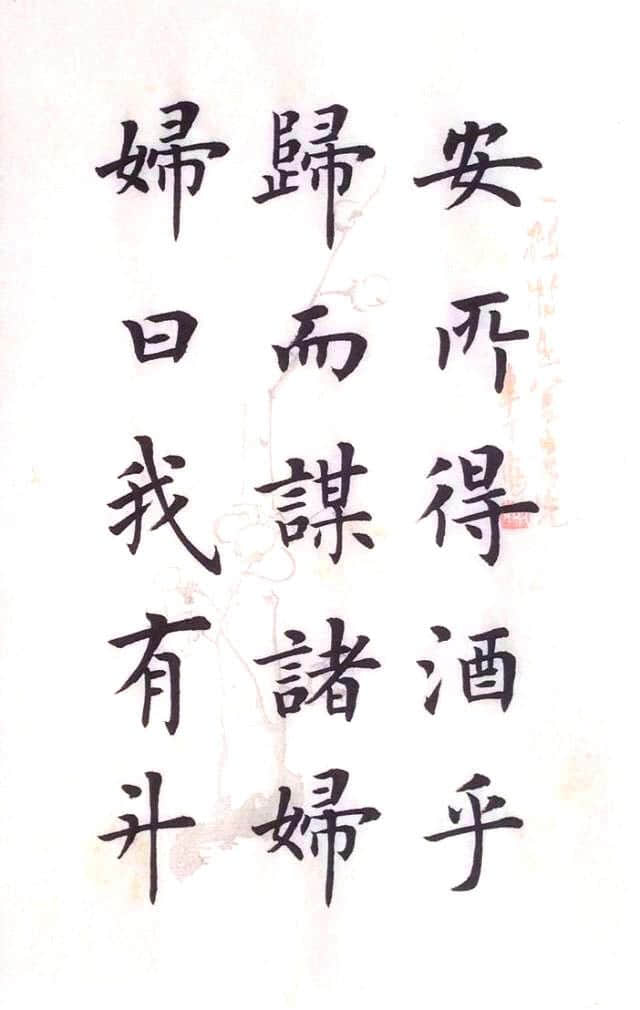 安所得酒乎
歸而謀諸婦
婦曰我有斗